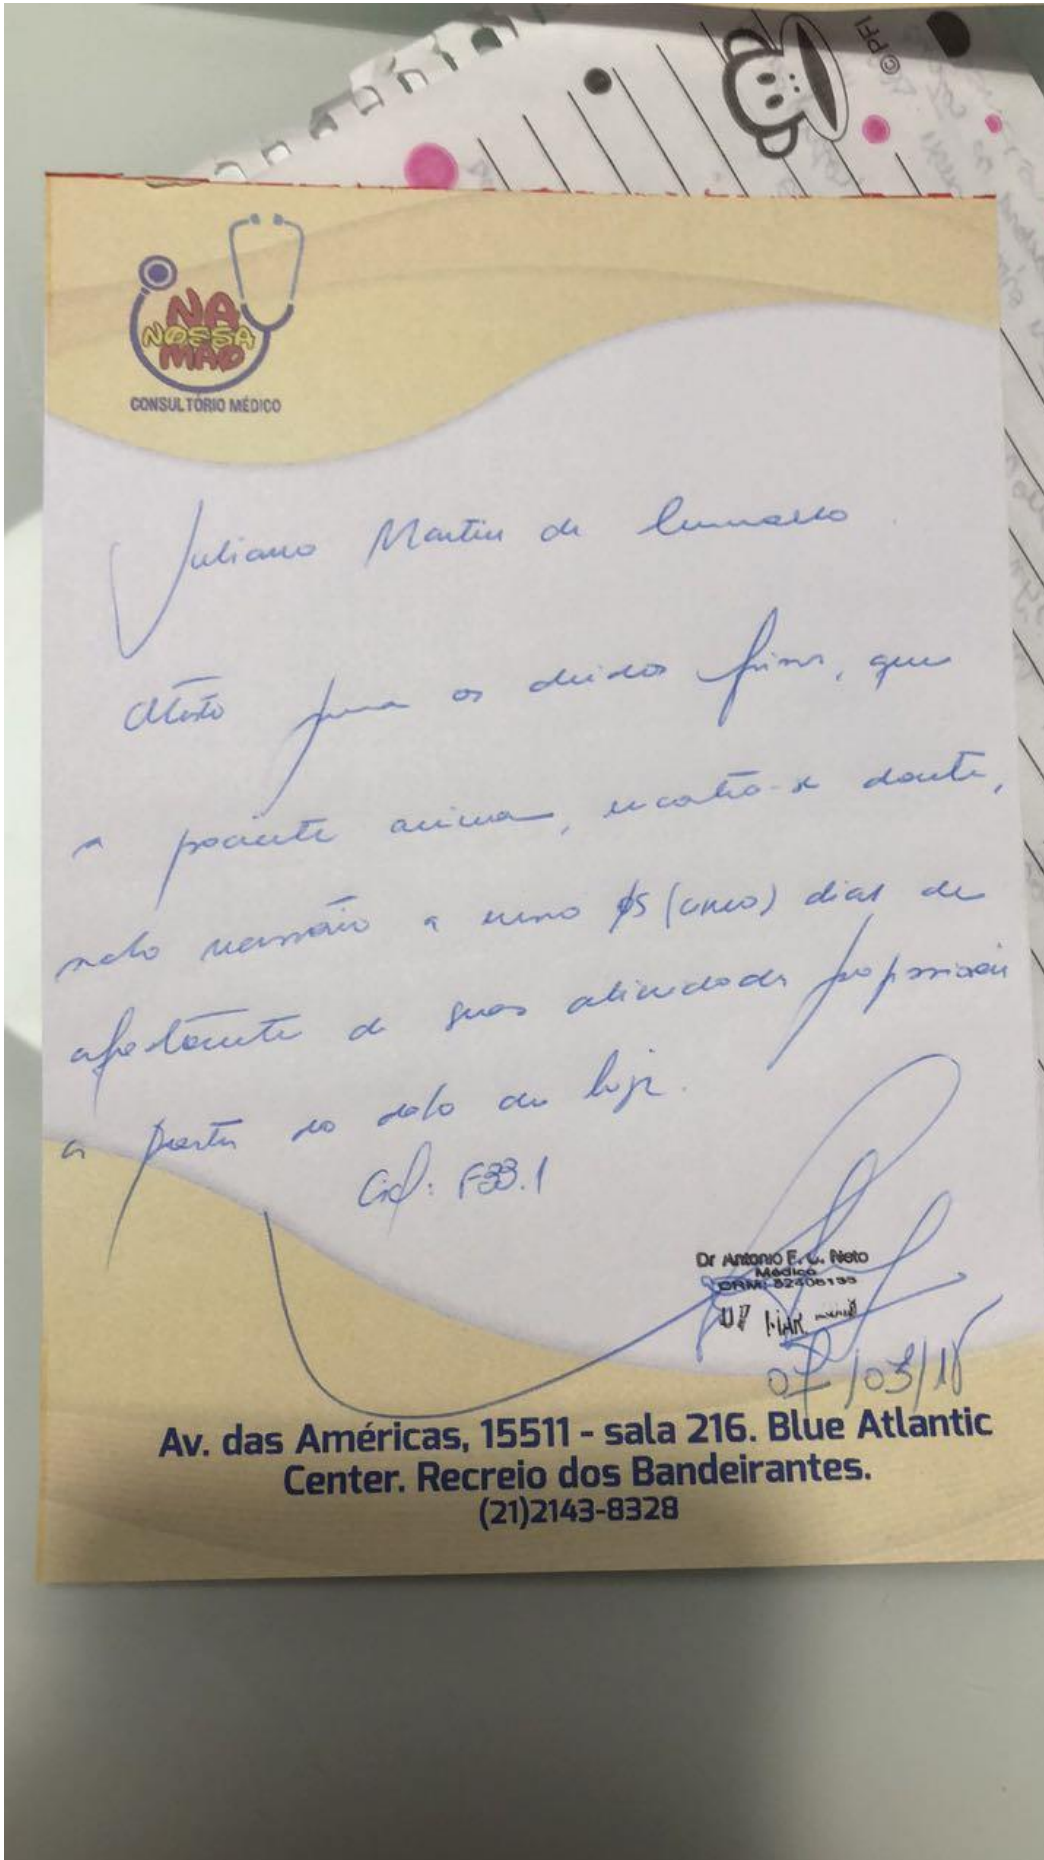 ©PFI
NA
NOSSA
MÃO
CONSULTÓRIO MÉDICO
Juliano Martin de
Atesto para os devidos fins, que
a paciente acima, encontra-se doente,
sendo necessário a mesmo 05 (cinco) dias de
afastamento de suas atividades profissionais
a partir da data de hoje.
Cid: F33.1
Dr Antonio F. C. Neto
Médico
07 MAR
07/03/18
Av. das Américas, 15511 - sala 216. Blue Atlantic
Center. Recreio dos Bandeirantes.
(21)2143-8328